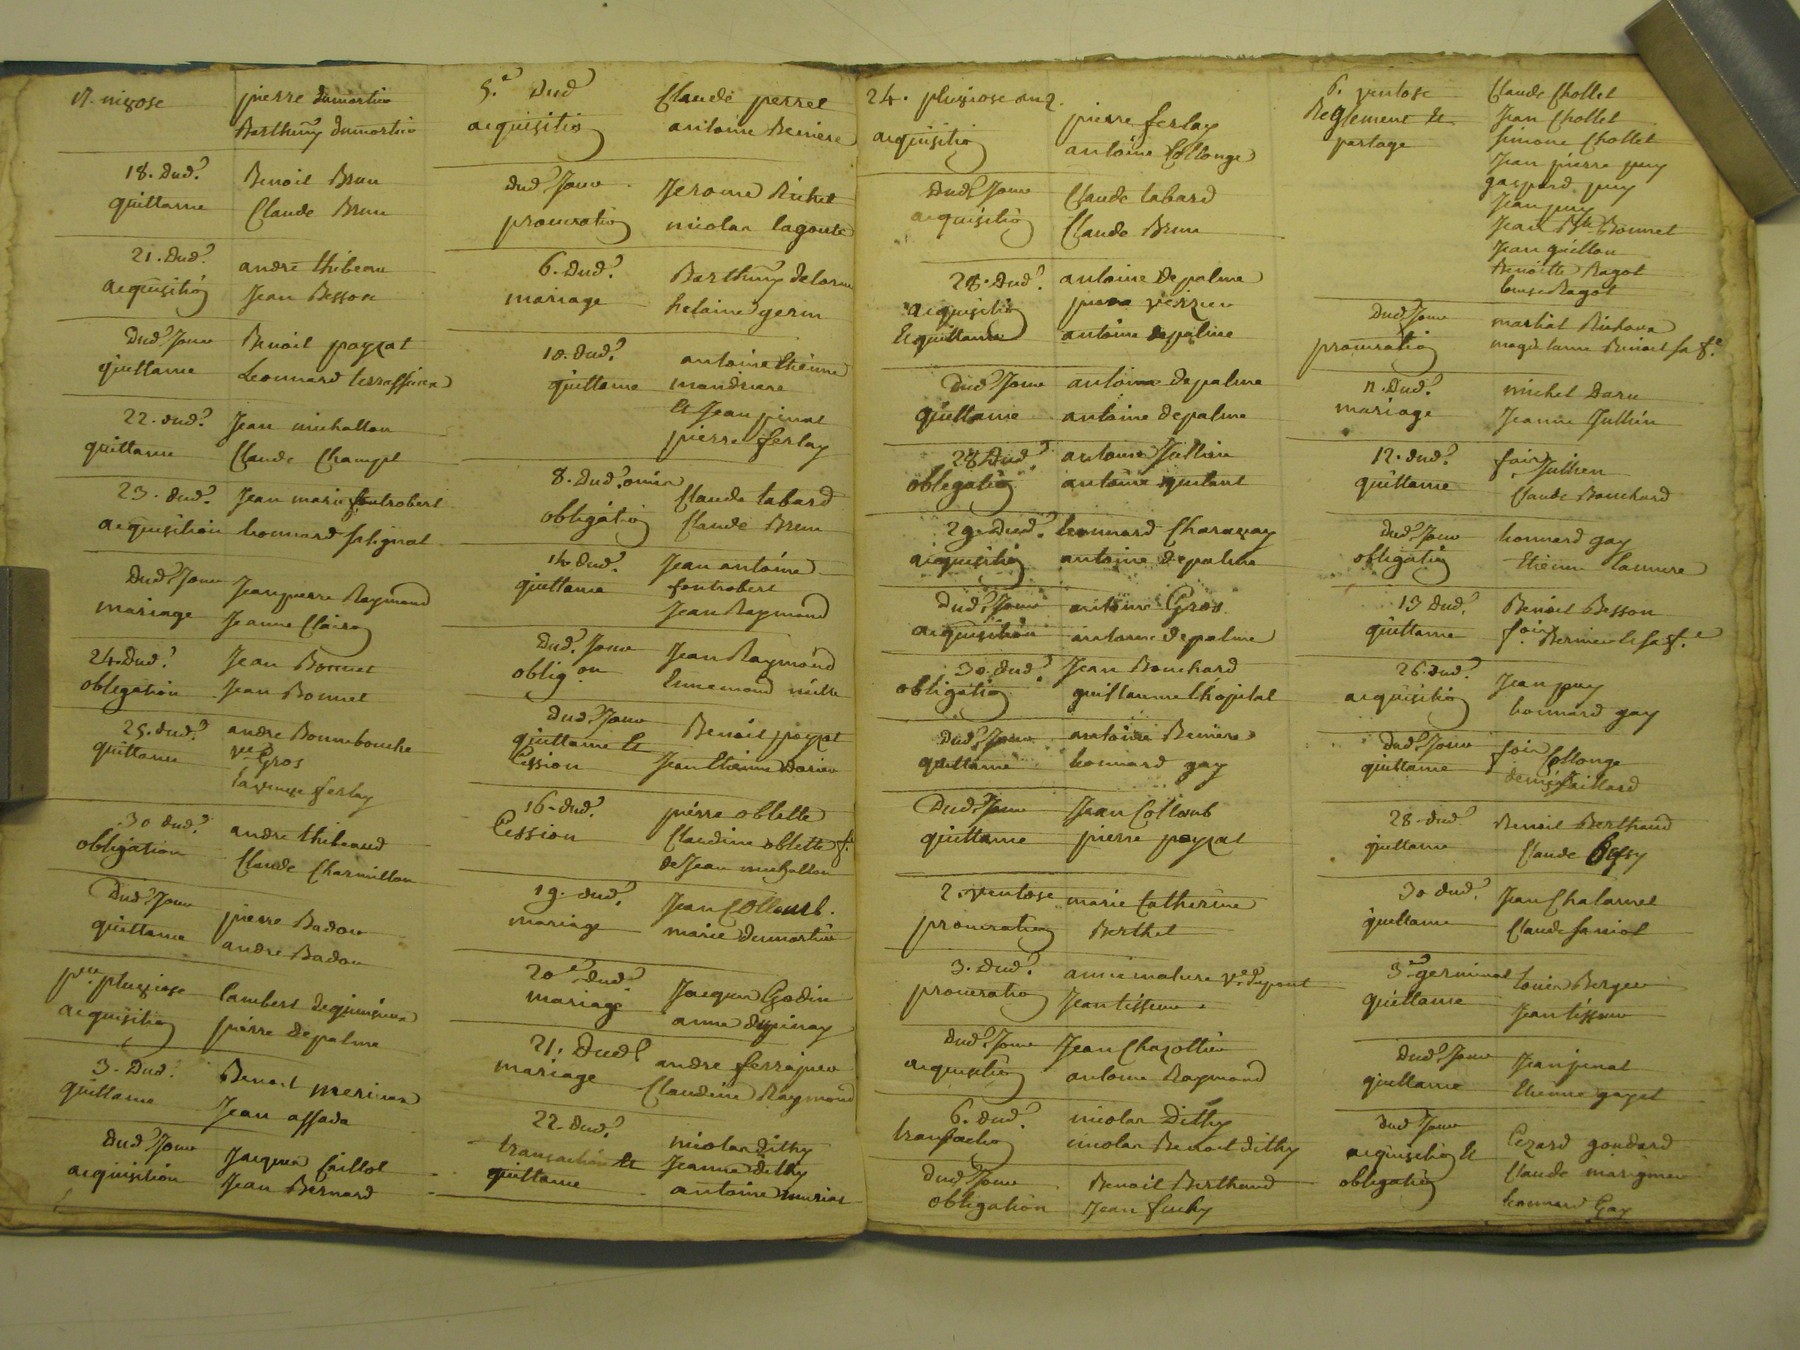 17. nivose
pierre dumortier
Barthmy dumortier
18. dud?
quittance
Benoit Brun
Claude Brun
21. dud?
acquisition
andré thibeau
Jean Besson
dud? Jour
quittance
Benoit payzat
Leonnard
22. dud?
quittance
Jean michallon
Claude
23. dud?
acquisition
Jean marie fontrobert
Leonnard
dud? Jour
mariage
Jean pierre Raymond
Jeanne
24. dud?
obligation
Jean Bonnet
Jean Bonnet
25. dud?
quittance
andré Bonnebouche
ve Gros
ferlay
30 dud?
obligation
andre thibeaud
Claude Charmillon
dud? Jour
quittance
pierre Badou
andre Badou
pluviose
acquisition
lambert
pierre depalme
3. dud?
quittance
Benoit
Jean
dud? Jour
acquisition
Jacques Caillot
Jean Bernard
5.e dud
acquisition
Claude perret
antoine Beniere
dud? Jour
procuration
Jerome Richet
nicolas lagoute
6. dud?
mariage
Barthmy delorme
10. dud?
quittance
antoine Etienne
mandriere
et Jean pinat
pierre ferlay
8. dud? omis
obligation
Claude tabard
Claude Brun
14 dud?
quittance
Jean antoine
fontrobert
Jean Raymond
dud? Jour
oblig.on
Jean Raymond
dud? Jour
quittance et
Cession
Benoit payzat
Jean Etienne
16. dud?
Cession
pierre oblette
Claudine oblette f.
de Jean michallon
19. dud?
mariage
Jean Collomb.
marie dumortier
20e dud?
mariage
Jacques Godin
anne dupinay
21. dud?
mariage
andre
Claudine Raymond
22. dud?
transaction et
quittance
nicolas dithy
Jeanne dithy
antoine
24. pluviose an 2.
acquisition
pierre ferlay
antoine Collonge
dud? Jour
acquisition
Claude tabard
Claude Brun
28. dud?
acquisition
et quittance
antoine depalme
antoine depalme
dud? Jour
quittance
antoine depalme
antoine depalme
28 dud?
obligation
antoine Jullien
antoine
29. dud?
acquisition
Leonnard Charazay
antoine depalme
dud? Jour
acquisition
antoine Gros
antoine depalme
30. dud?
obligation
Jean Bouchard
guillaume Lhopital
dud? Jour
quittance
antoine Beniere
Leonnard gay
dud? Jour
quittance
Jean Collomb
pierre payzat
2. ventose
procuration
marie Catherine
Berthet
3. dud?
procuration
anne mature ve dupont
Jean tisseur
dud? Jour
acquisition
Jean Chazottier
antoine Raymond
6. dud?
transaction
nicolas Dithy
nicolas Benoit dithy
dud? Jour
obligation
Benoit Berthaud
Jean
6. ventose
Reglement et
partage
Claude Chollet
Jean Chollet
simone Chollet
Jean pierre puy
gaspard puy
Jean puy
Jean Bte Bonnet
Jean guillon
Benoitte Ragot
Ragot
dud? Jour
procuration
martial
magdelaine Benoit sa fe.
11. dud?
mariage
michel
Jeanne Jullien
12. dud?
quittance
Jullien
Claude Bouchard
dud? Jour
obligation
Leonnard gay
Etienne
13 dud?
quittance
Benoit Besson
sa fe
26. dud?
acquisition
Jean puy
Leonnard gay
dud? Jour
quittance
Collonge
denis
28. dud?
quittance
Benoit Berthaud
Claude
30 dud?
quittance
Jean Chalamet
Claude
3e germinal
quittance
Louis Berger
Jean tisseur
dud? Jour
quittance
Jean pinat
Etienne gayet
dud? Jour
acquisition et
obligation
Cezard goudard
Claude
Leonnard Gay